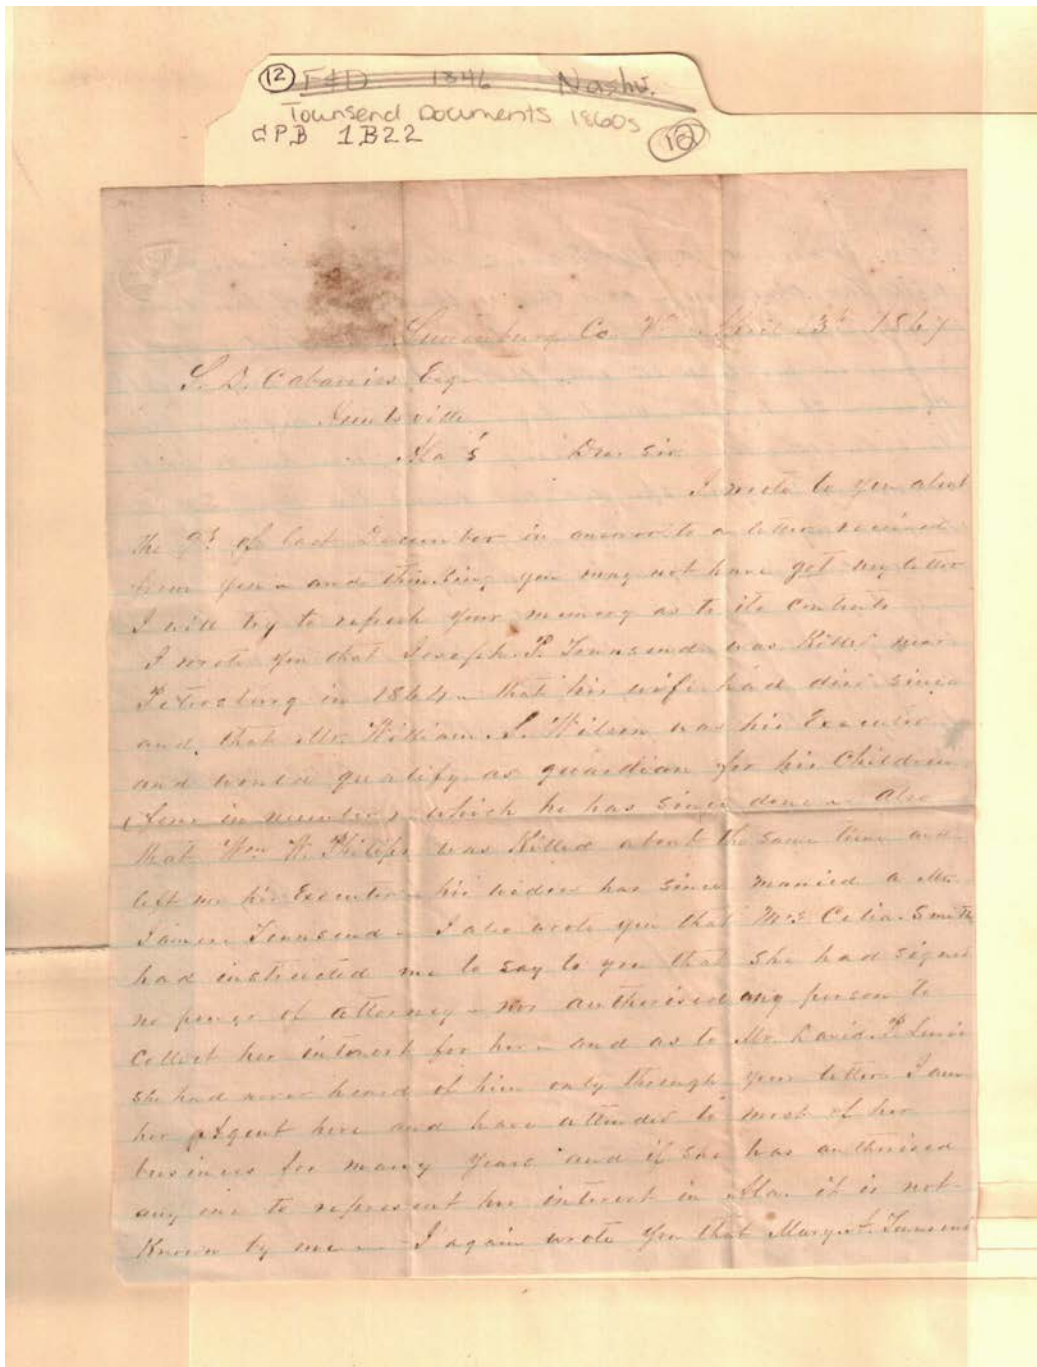 12 F&D 1846 Nashv.
Townsend Documents 1860s
CPB 1B22 12
Lunenburg Co. Va April 13th 1867
S. D. Cabaniss Esq
Huntsville
Ala's Dear Sir
I wrote to you about
the 9th of last December in answer to a letter received
from you and thinking you may not have got my letter
I will try to refresh your memory as to its contents
I wrote you that Joseph P. Townsend was Killed near
Petersburg in 1864 - that his wife had died since
and that Mr. William S. Wilson was his Executor
and would qualify as guardian for his Children
in number) which he has since done - also
that Wm W. Philips was Killed about the same time and
left me his Executor - his widow has since married a Mr.
James Townsend - I also wrote you that Mrs Celia Smith
had instructed me to say to you that she had signed
no power of attorney - nor authorised any person to
Collect her interest for her - and as to Mr. David P. Lewis
she had never heard of him only through your letter I am
her Agent here and have attended to most of her
business for many years and if she has authorised
any one to represent her interest in Ala. it is not
Known by me - I again wrote you that Mary A. Townsend